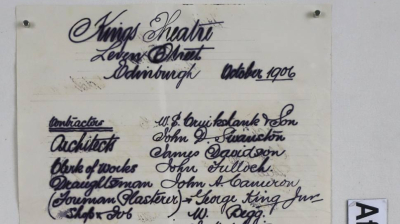 Kings Theatre
Leven Street
Edinburgh October 1906
Contractors W. S. Cruikshank & Son
Architects John D. Swanston
James Davidson
Clerk of Works John Tulloch
Draughtsman John A. Cameron
Foreman Plasterer George King Junr
Shop Job W. Pegg
A1